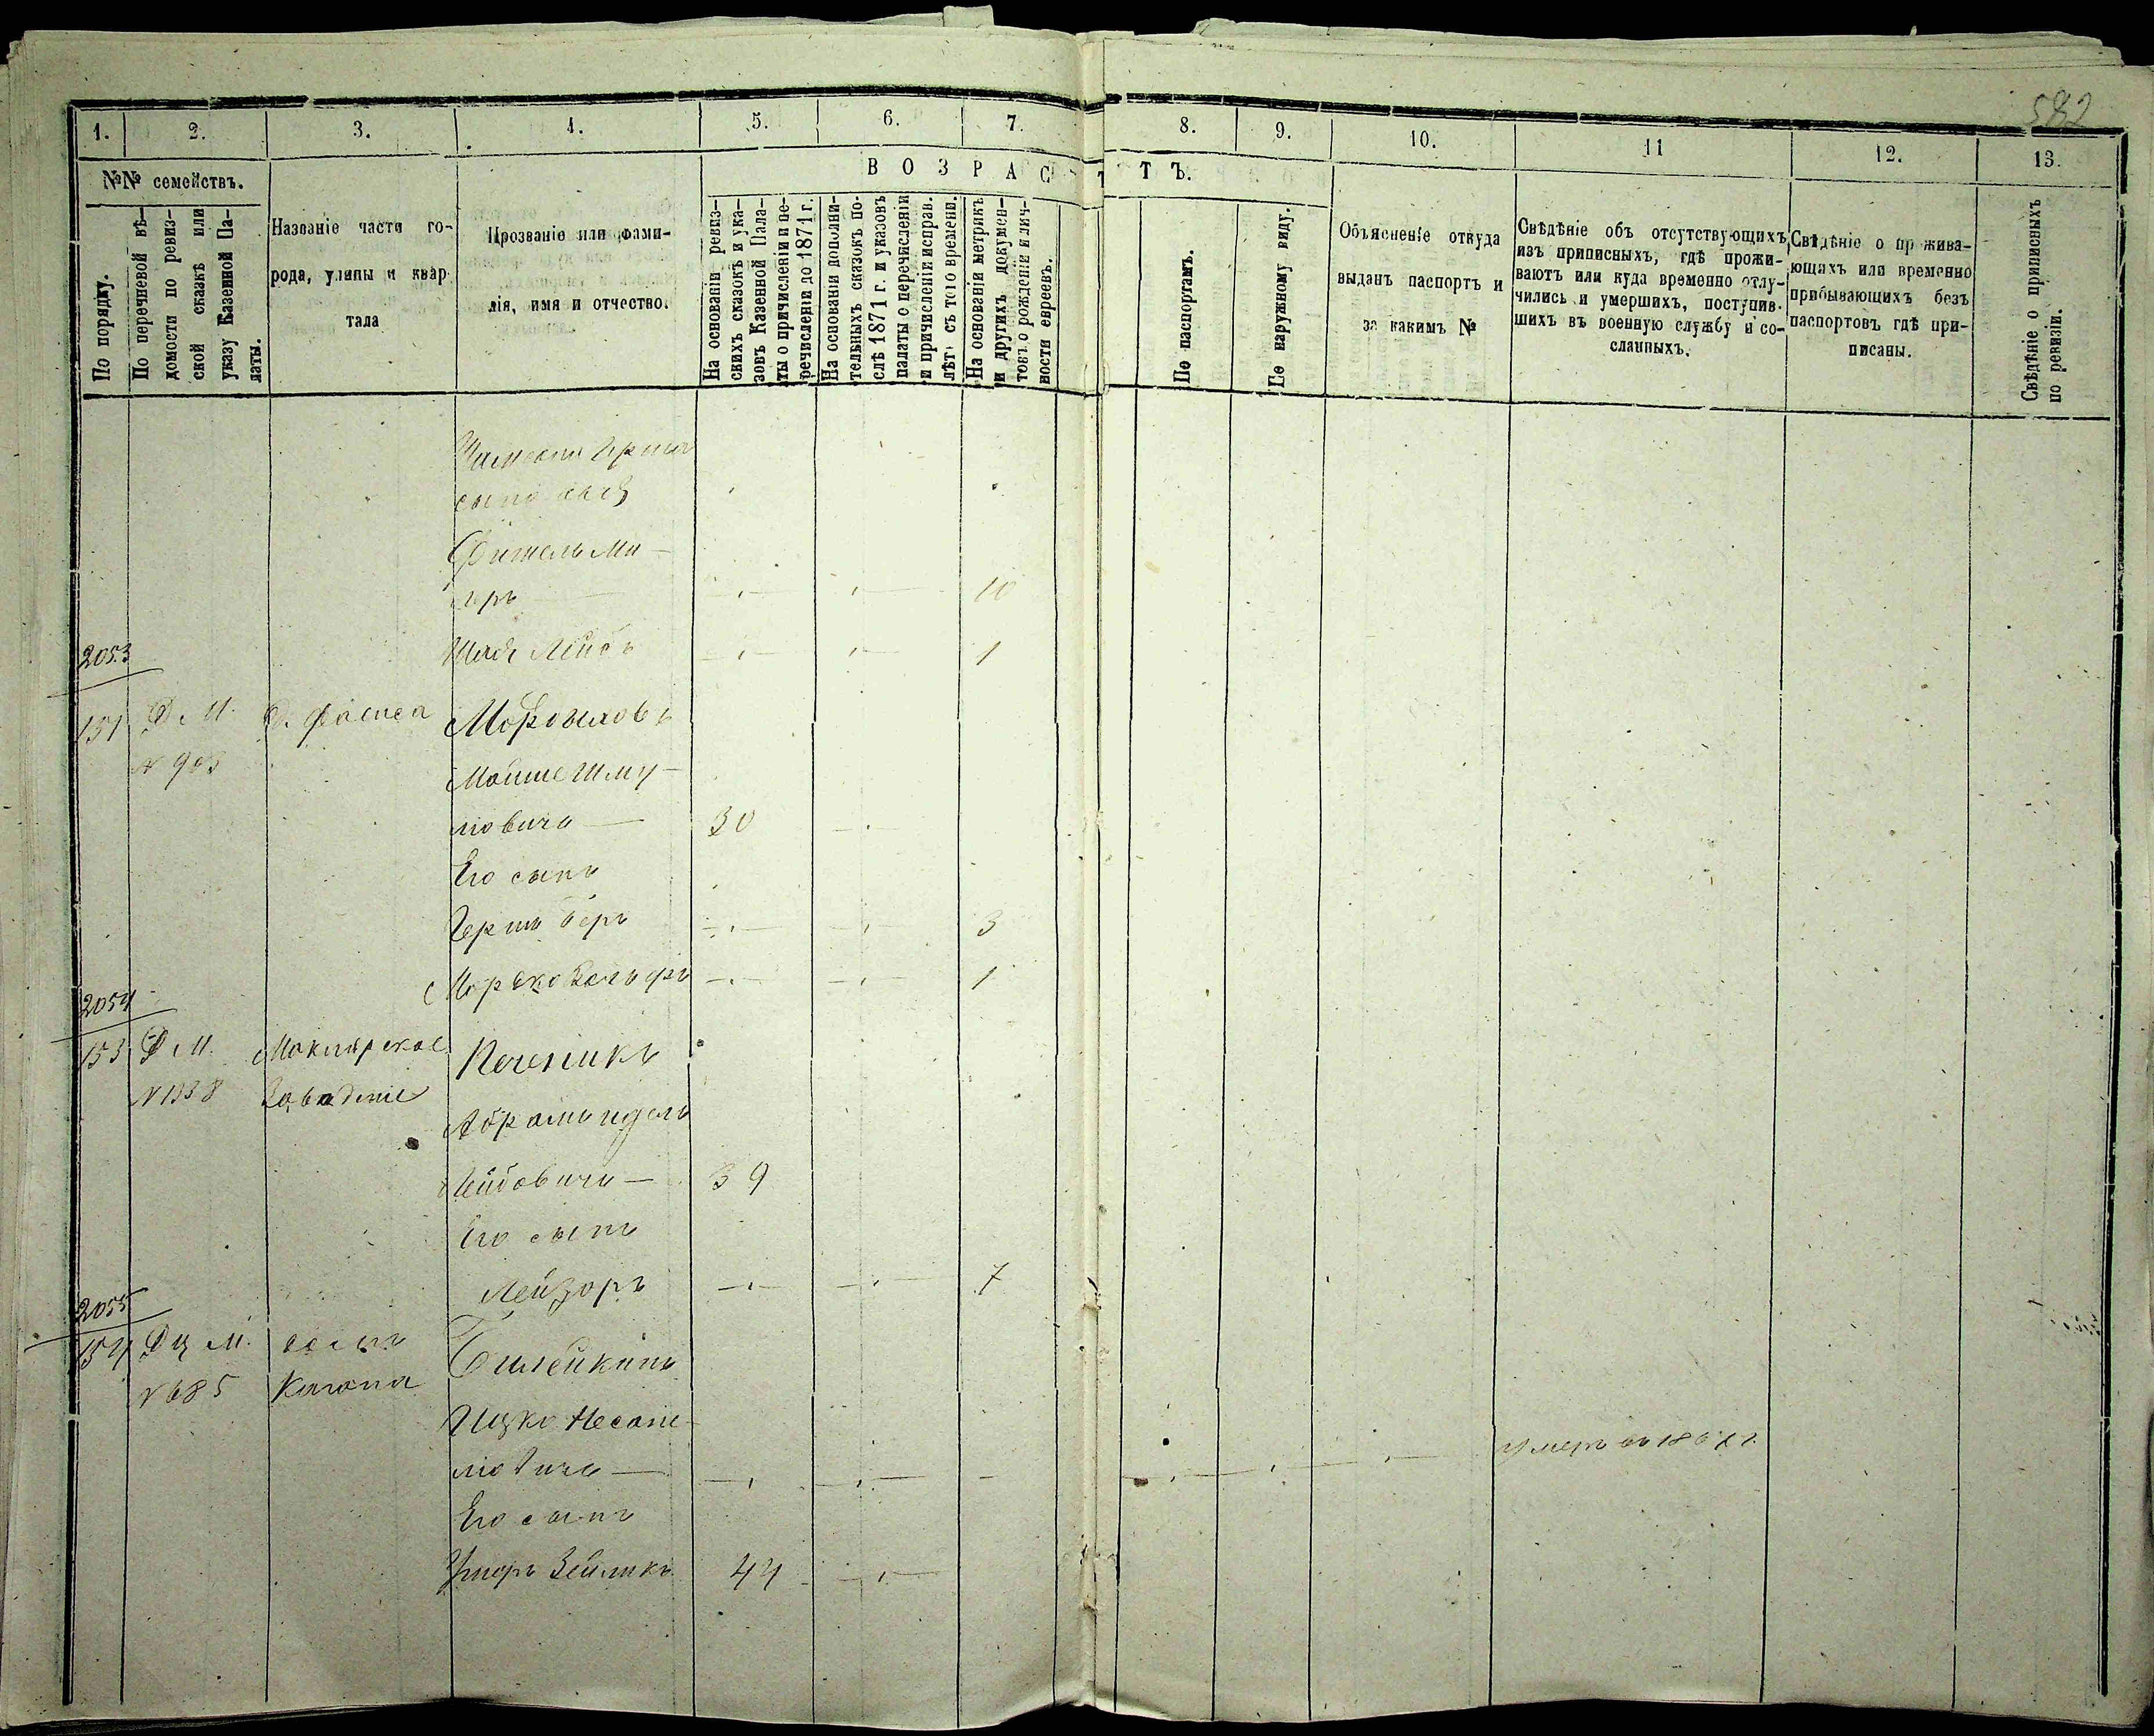 582
1. 2. 3. 4. 5. 6. 7. 8. 9. 10. 11 12. 13.
№№ семействъ.
По порядку.
По перечневой вѣ-
домости по ревиз-
ской сказкѣ или
указу Казенной Па-
латы.
Названіе части го-
рода, улицы и квар
тала
Прозваніе или фами-
лія, имя и отчество.
ВОЗРАСТЪ.
На основаніи ревиз-
скихъ сказокъ и ука-
зовъ Казенной Пала-
ты о причисленіи и пе-
речисленіи до 1871 г.
На основаніи дополни-
тельныхъ сказокъ по-
слѣ 1871 г. и указовъ
палаты о перечисленіи
и причисленіи исправ.
лѣтъ съ того времени.
На основаніи метрикъ
и другихъ докумен-
товъ о рожденіи и лич-
ности евреевъ.
По паспортамъ.
По наружному виду.
Объясненіе откуда
выданъ паспортъ и
за какимъ №
Свѣдѣніе объ отсутствующихъ
изъ приписныхъ, гдѣ прожи-
ваютъ или куда временно отлу-
чились и умершихъ, поступив-
шихъ въ военную службу и со-
сланныхъ.
Свѣдѣніе о прожива-
ющихъ или временно
прибывающихъ безъ
паспортовъ гдѣ при-
писаны.
Свѣдѣніе о приписныхъ
по ревизіи.
Герша
сына
Фишель Ми-
10
2053
Шая Лейбъ 1
151 Д. М.
№ 903
Мойше Шму-
ловичъ — 30
Его сынъ
Гершъ Беръ 3
Морько Вольфъ 1
2054
153 Д. М. Маклерское Печеникъ
№ 1338 Заведеніе
Абрамъ Идель
Лейбовичъ — 39
Его сынъ
Лейзоръ 7
2055
154 Дц М. Билейкинъ
№ 685 Когана
Ицко
умеръ въ
Его сынъ
Зеликъ 44